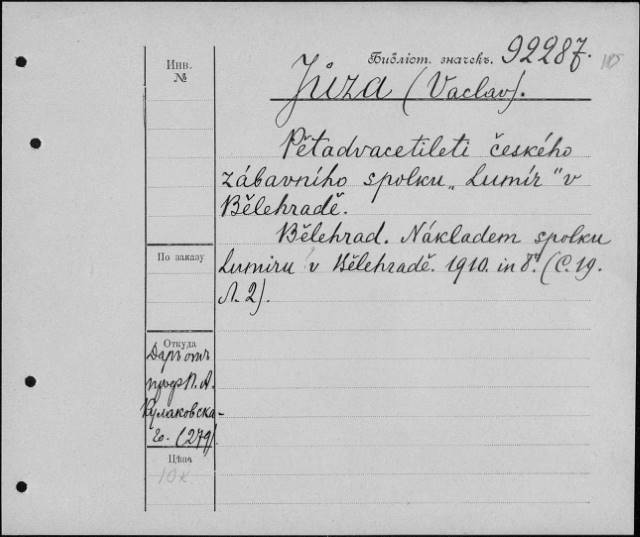 Инв. №
Библіот. значекъ. 92287.
Jůza (Vaclav).
Pětadvacetileti českého
zábavního spolku „Lumír“ v
Bělehradě.
Bělehrad. Nákladem spolku
Lumiru v Bělehradě. 1910. in 8º. (С. 19.
Л. 2).
По заказу
Откуда
Даръ отъ
проф. П. А.
Кулаковска-
го. (279)
Цѣна
10 к